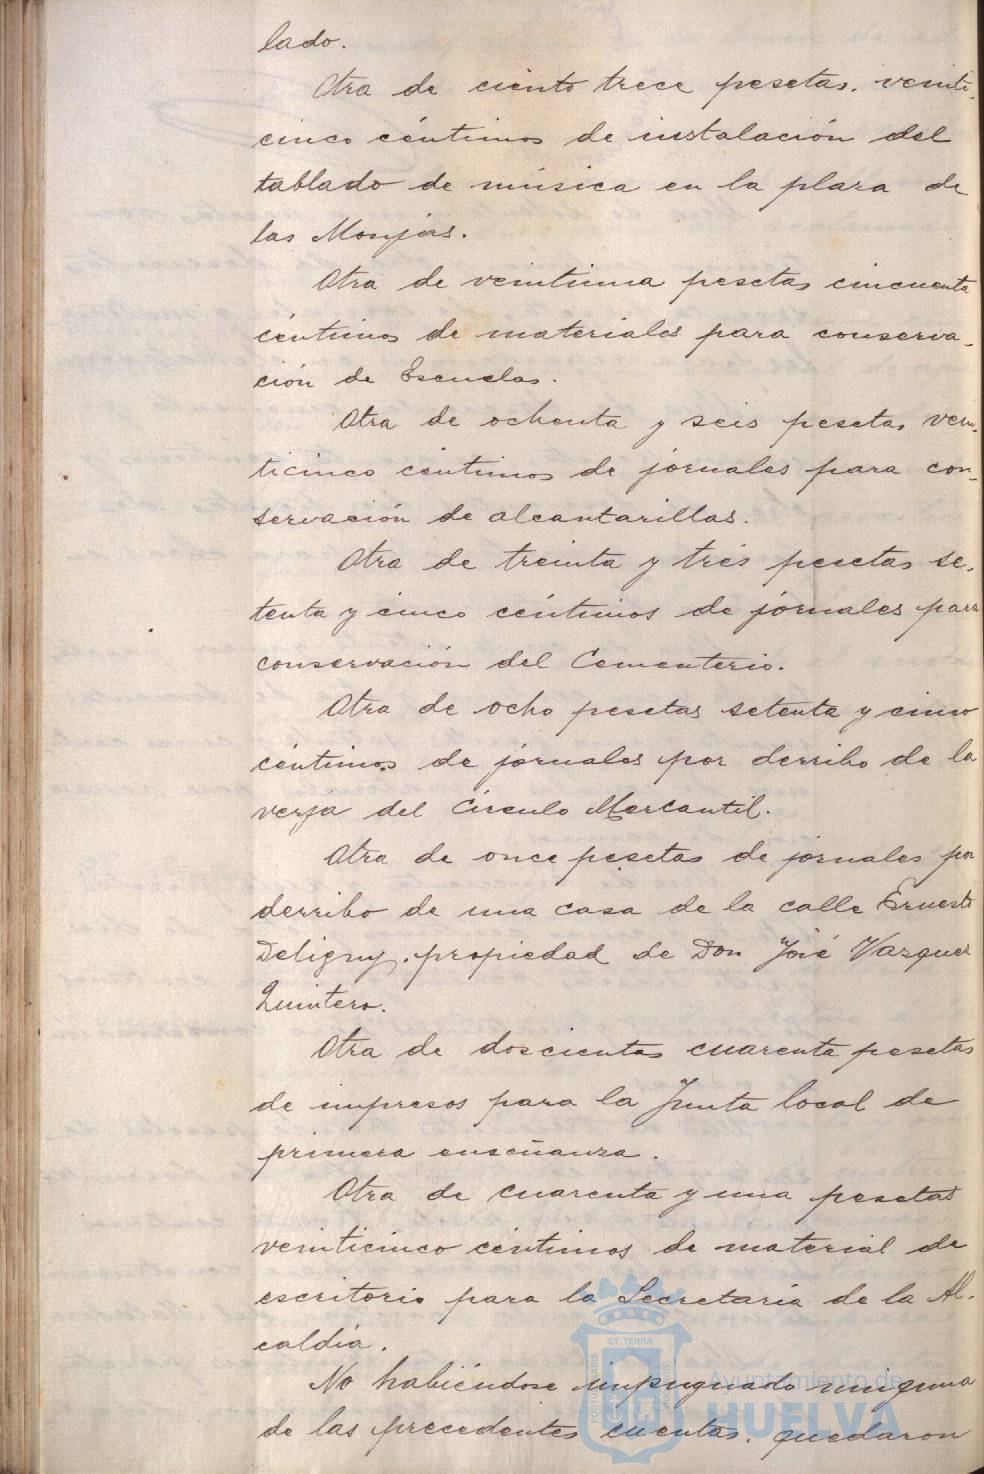 lado.
Otra de ciento trece pesetas, veinti-
cinco céntimos de instalación del
tablado de música en la plaza de
las Monjas.
Otra de veintiuna pesetas cincuenta
céntimos de materiales para conserva-
ción de Escuelas.
Otra de ochenta y seis pesetas vein-
ticinco céntimos de jornales para con-
servación de alcantarillas.
Otra de treinta y tres pesetas se-
tenta y cinco céntimos de jornales para
conservación del Cementerio.
Otra de ocho pesetas setenta y cinco
céntimos de jornales por derribo de la
verja del Círculo Mercantil.
Otra de once pesetas de jornales por
derribo de una casa de la calle Ernesto
Deligny, propiedad de Don José Vazquez
Quintero.
Otra de doscientas cuarenta pesetas
de impresos para la Junta local de
primera enseñanza.
Otra de cuarenta y una pesetas
veinticinco céntimos de material de
escritorio para la Secretaría de la Al-
caldía.
No habiéndose impugnado ninguna
de las precedentes cuentas, quedaron
ET TERRÆ
Ayuntamiento de
HUELVA